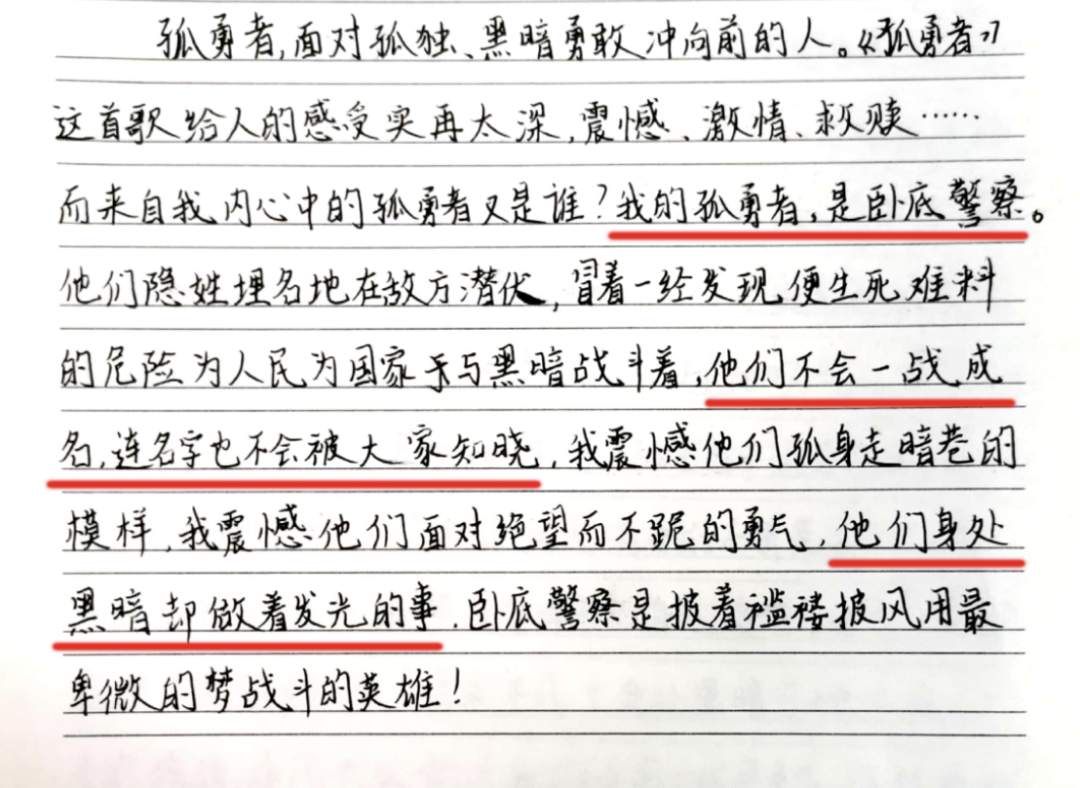 孤勇者,面对孤独、黑暗勇敢冲向前的人。《孤勇者》
这首歌给人的感受实再太深,震憾、激情、救赎……
而来自我内心中的孤勇者又是谁?我的孤勇者,是卧底警察。
他们隐姓埋名地在敌方潜伏,冒着一经发现便生死难料
的危险为人民为国家于与黑暗战斗着,他们不会一战成
名,连名字也不会被大家知晓,我震憾他们孤身走暗巷的
模样,我震憾他们面对绝望而不跪的勇气,他们身处
黑暗却做着发光的事.卧底警察是披着褴褛披风用最
卑微的梦战斗的英雄!